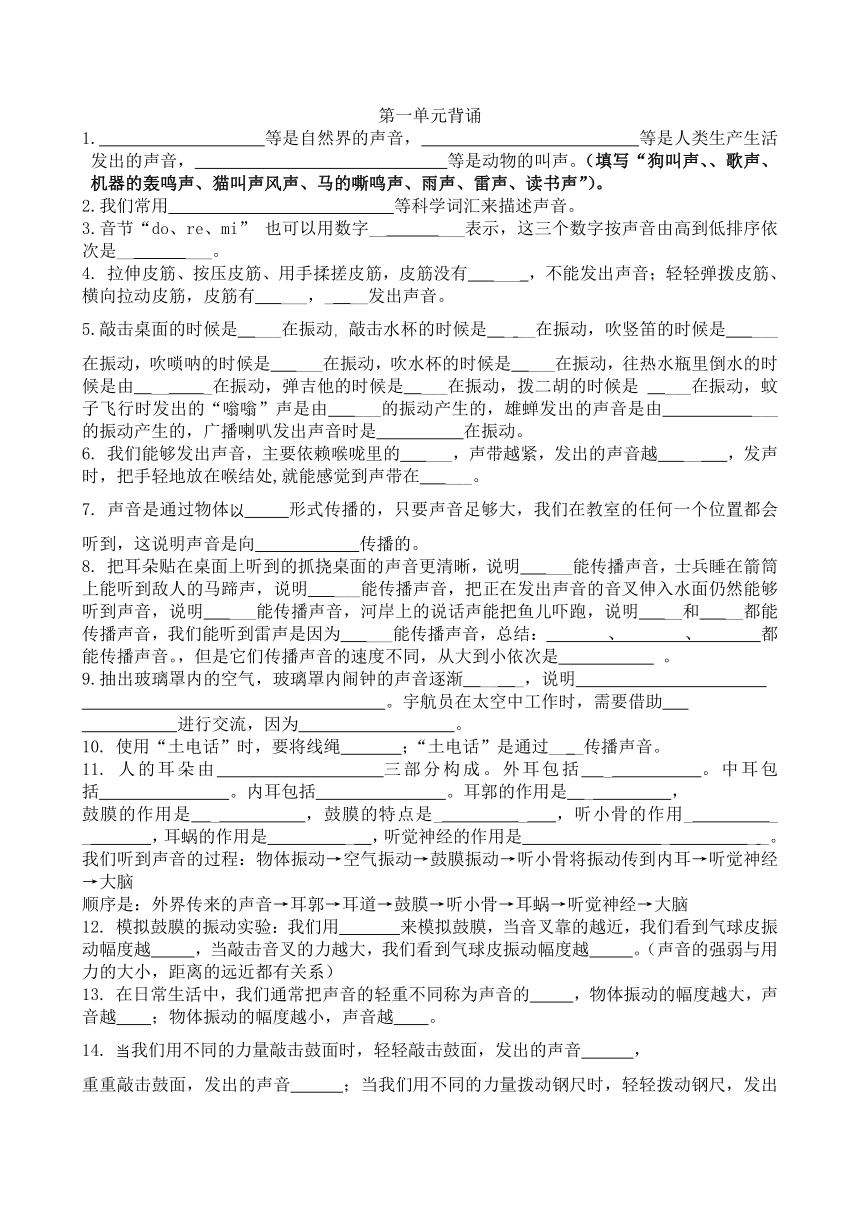 第一单元背诵
1.___________________等是自然界的声音，_________________________等是人类生产生活
发出的声音，_____________________________等是动物的叫声。（填写“狗叫声、、歌声、
机器的轰鸣声、猫叫声风声、马的嘶鸣声、雨声、雷声、读书声”）。
2.我们常用__________________________等科学词汇来描述声音。
3.音节“do、re、mi” 也可以用数字___________表示，这三个数字按声音由高到低排序依
次是___________。
4. 拉伸皮筋、按压皮筋、用手揉搓皮筋，皮筋没有_______，不能发出声音；轻轻弹拨皮筋、
横向拉动皮筋，皮筋有______，_____发出声音。
5.敲击桌面的时候是_____在振动，敲击水杯的时候是_____在振动，吹竖笛的时候是______
在振动，吹唢呐的时候是______在振动，吹水杯的时候是_____在振动，往热水瓶里倒水的时
候是由_________在振动，弹吉他的时候是_____在振动，拨二胡的时候是 _____在振动，蚊
子飞行时发出的“嗡嗡”声是由______的振动产生的，雄蝉发出的声音是由_____________
的振动产生的，广播喇叭发出声音时是__________在振动。
6. 我们能够发出声音，主要依赖喉咙里的______，声带越紧，发出的声音越________，发声
时，把手轻地放在喉结处,就能感觉到声带在______。
7. 声音是通过物体以_____形式传播的，只要声音足够大，我们在教室的任何一个位置都会
听到，这说明声音是向____________传播的。
8. 把耳朵贴在桌面上听到的抓挠桌面的声音更清晰，说明______能传播声音，士兵睡在箭筒
上能听到敌人的马蹄声，说明______能传播声音，把正在发出声音的音叉伸入水面仍然能够
听到声音，说明______能传播声音，河岸上的说话声能把鱼儿吓跑，说明_____和_____都能
传播声音，我们能听到雷声是因为______能传播声音，总结：_______、________、________都
能传播声音。，但是它们传播声音的速度不同，从大到小依次是___________ 。
9.抽出玻璃罩内的空气，玻璃罩内闹钟的声音逐渐_______，说明______________________
___________________________________。宇航员在太空中工作时，需要借助___
___________进行交流，因为__________________。
10. 使用“土电话”时，要将线绳_______；“土电话”是通过____传播声音。
11. 人的耳朵由___________________三部分构成。外耳包括_____________。中耳包
括_______________。内耳包括_______________。耳郭的作用是____________，
鼓膜的作用是_____________，鼓膜的特点是_____________，听小骨的作用___________
________，耳蜗的作用是____________，听觉神经的作用是____________________________。
我们听到声音的过程：物体振动→空气振动→鼓膜振动→听小骨将振动传到内耳→听觉神经
→大脑
顺序是：外界传来的声音→耳郭→耳道→鼓膜→听小骨→耳蜗→听觉神经→大脑
12. 模拟鼓膜的振动实验：我们用_______来模拟鼓膜，当音叉靠的越近，我们看到气球皮振
动幅度越_____，当敲击音叉的力越大，我们看到气球皮振动幅度越_____。（声音的强弱与用
力的大小，距离的远近都有关系）
13. 在日常生活中，我们通常把声音的轻重不同称为声音的_____，物体振动的幅度越大，声
音越____；物体振动的幅度越小，声音越____。
14. 当我们用不同的力量敲击鼓面时，轻轻敲击鼓面，发出的声音______，
重重敲击鼓面，发出的声音______；当我们用不同的力量拨动钢尺时，轻轻拨动钢尺，发出